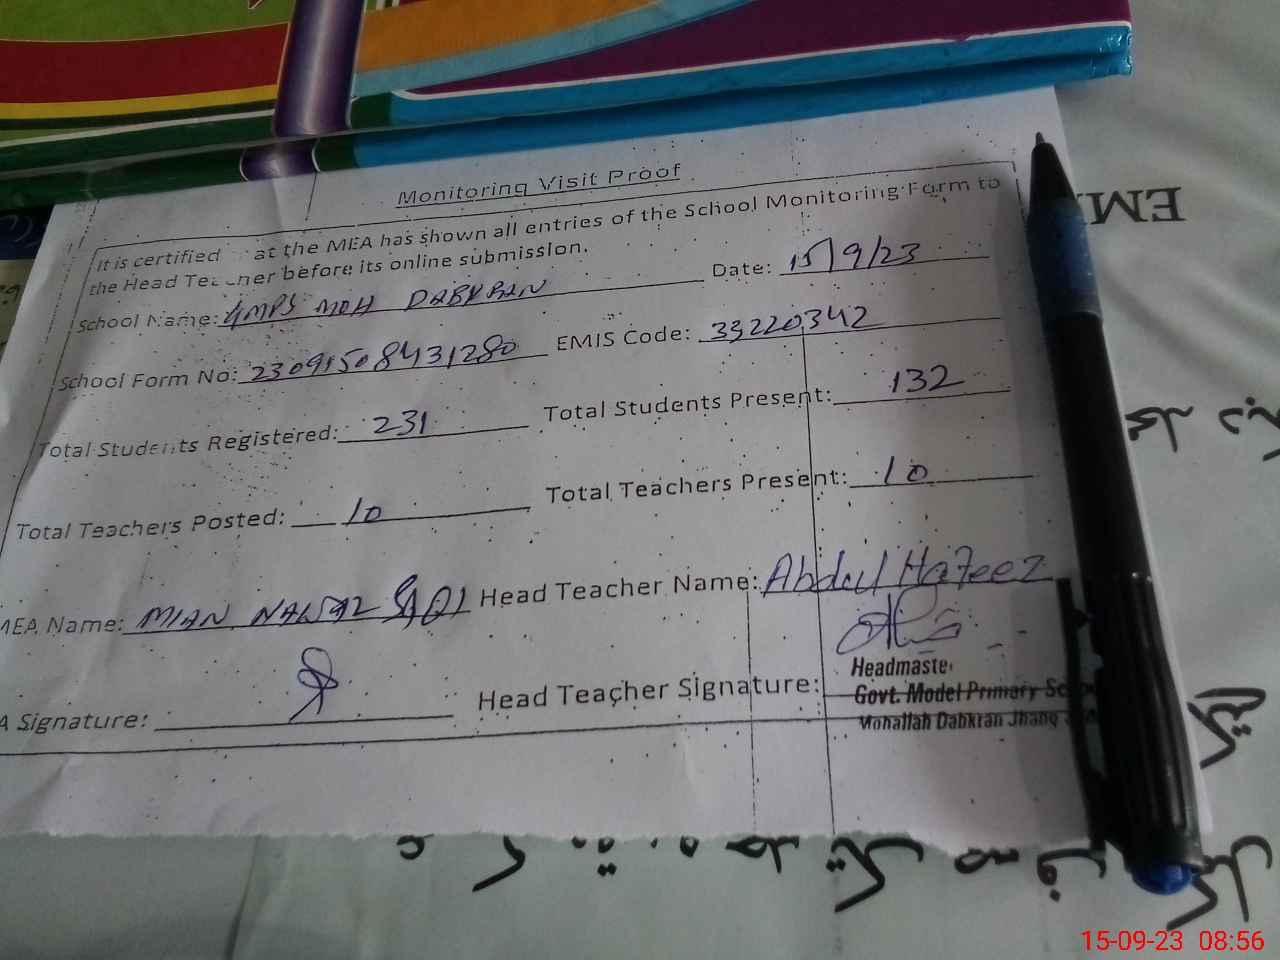 Monitoring Visit Proof
It is certified at the MEA has shown all entries of the School Monitoring Form to
the Head Teacher before its online submission.
School Name: GMPS MOH DABKRAN Date: 15/9/23
School Form No: 23091508431280 EMIS Code: 33220342
Total Students Registered: 231 Total Students Present: 132
Total Teachers Posted: 10 Total Teachers Present: 10
MEA Name: MIAN NAWAZ Head Teacher Name: Abdul Hafeez
A Signature: Head Teacher Signature:
Headmaste
Govt. Model Primary Sc
Mohallah Dabkran Jhang
EMI
15-09-23 08:56